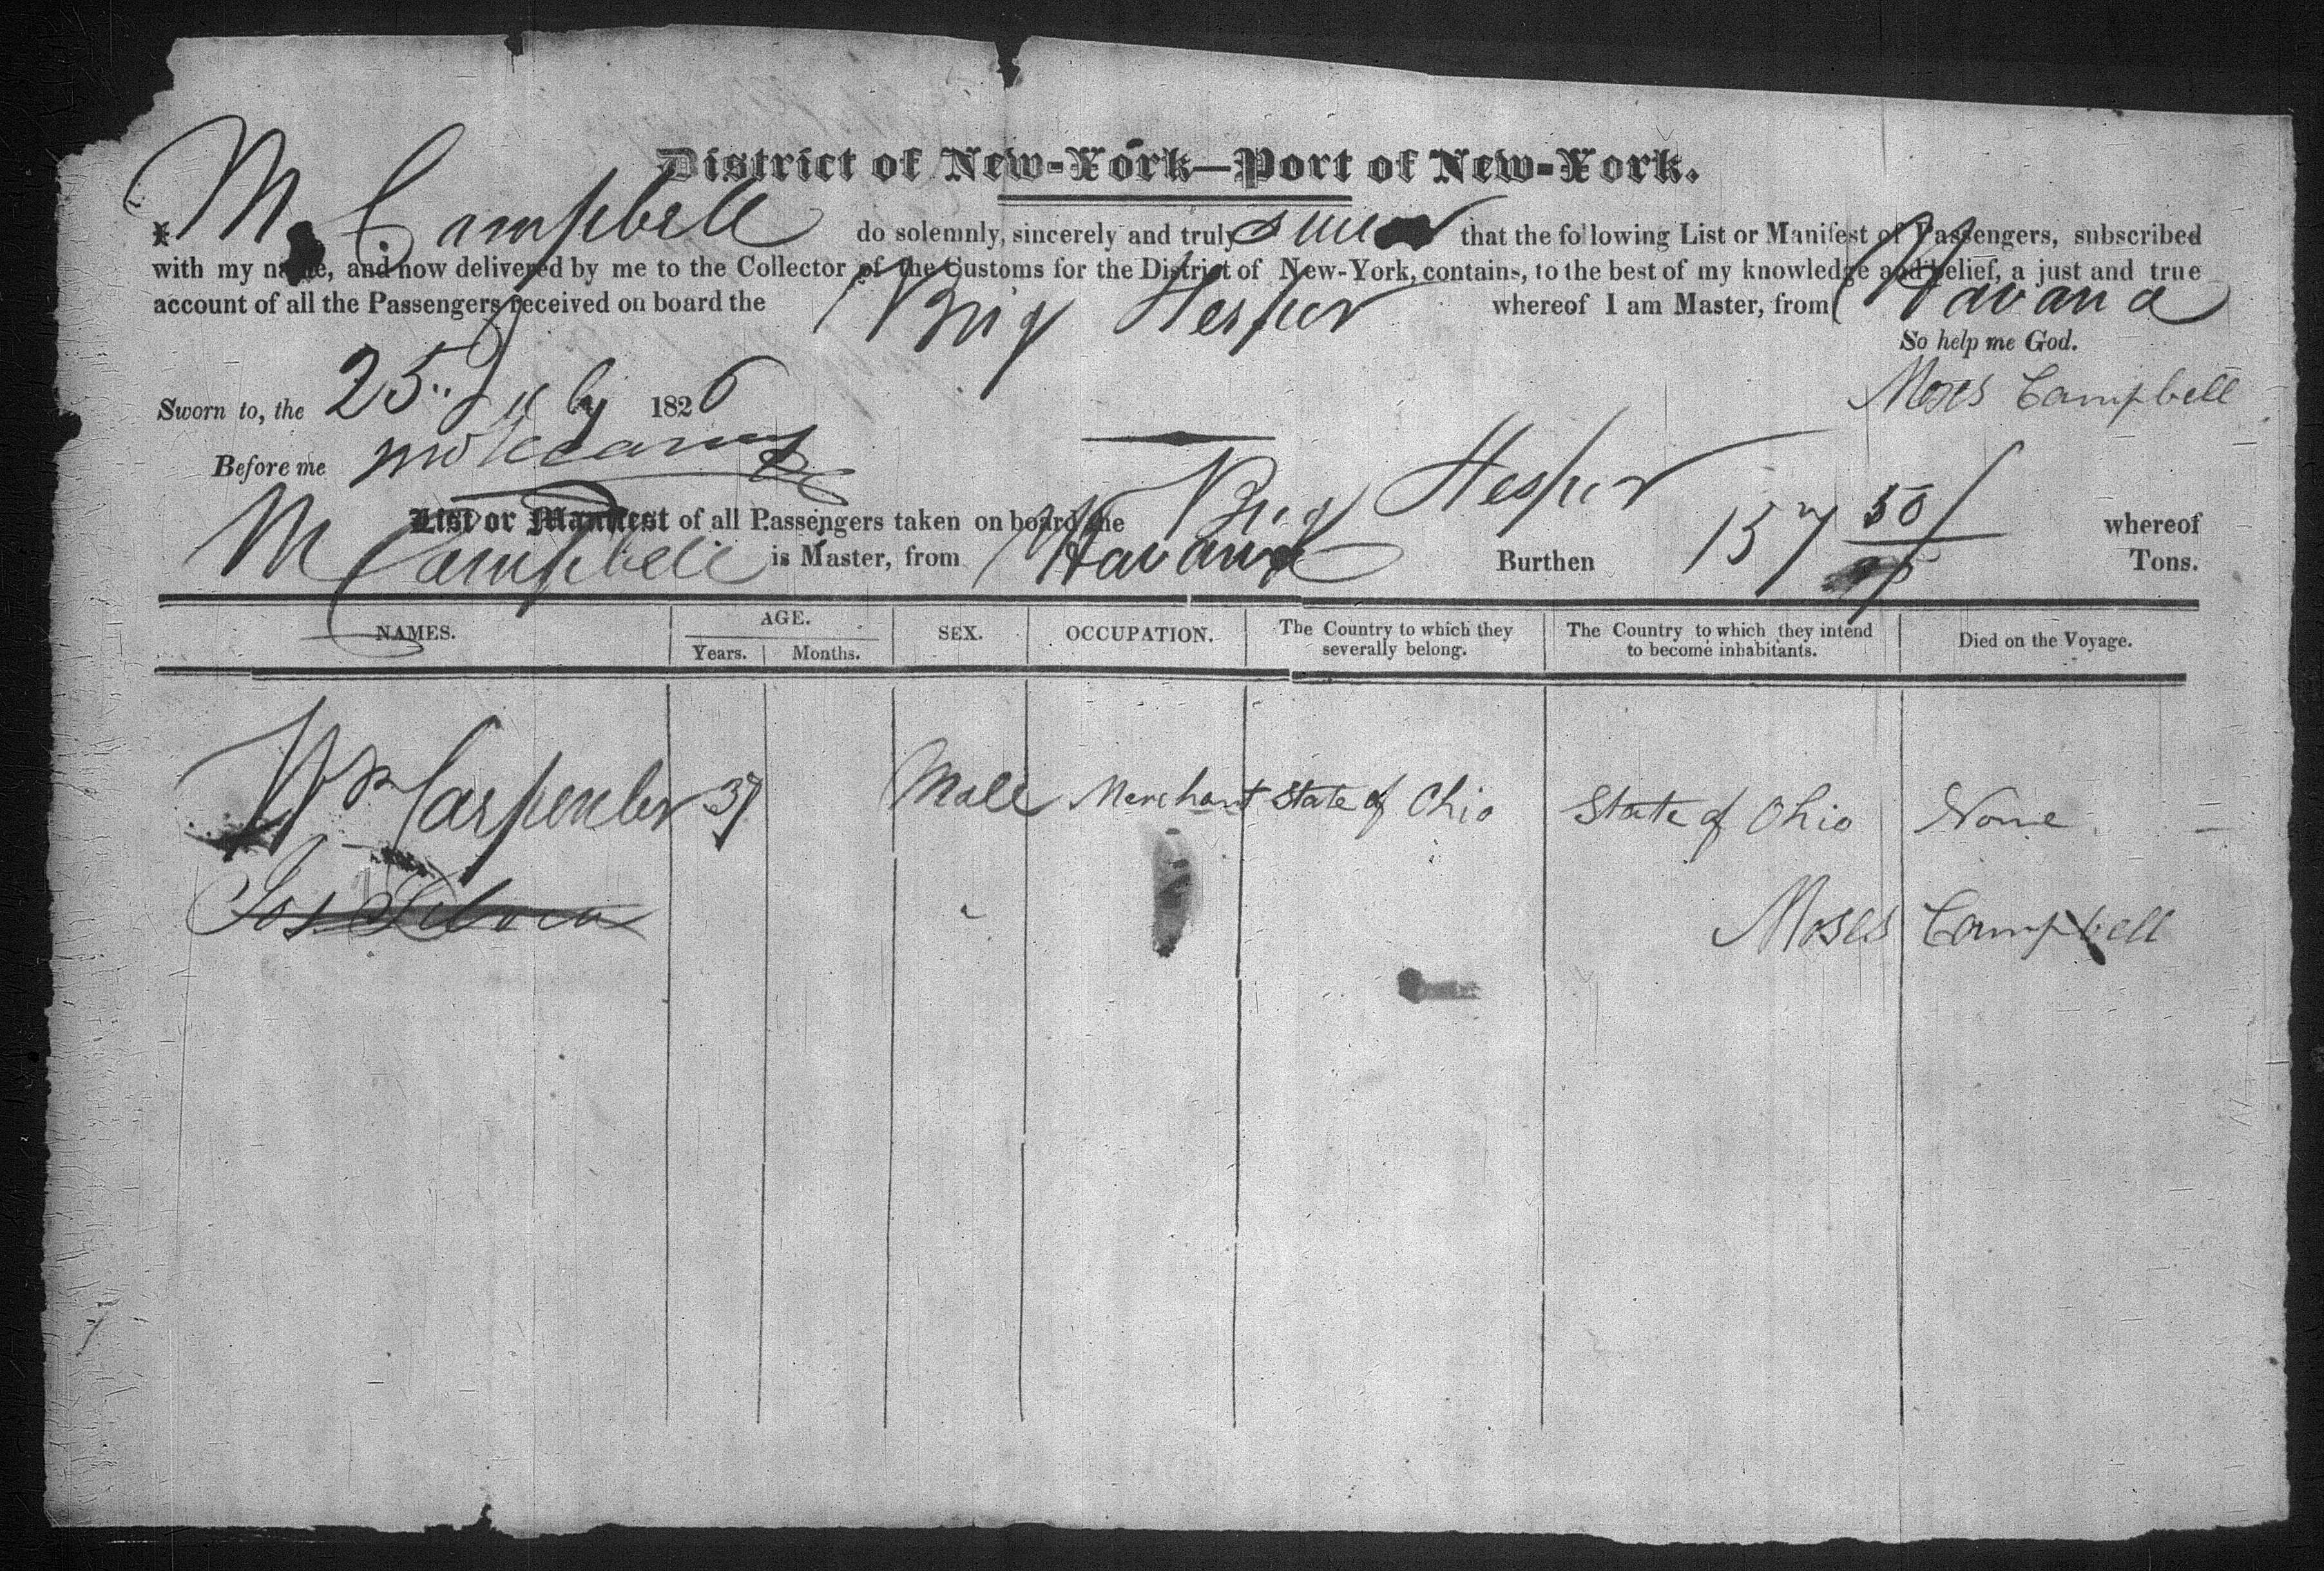 District of New-York—Port of New-York.
M. Campbell do solemnly, sincerely and truly swear that the following List or Manifest of Passengers, subscribed
with my name, and now delivered by me to the Collector of the Customs for the District of New-York, contains, to the best of my knowledge and belief, a just and true
account of all the Passengers received on board the Brig Hesper whereof I am Master, from Havana
So help me God.
Sworn to, the 25.. July 1826
Moses Campbell
Before me
List or Manifest of all Passengers taken on board the Brig Hesper whereof
M Campbell is Master, from Havana Burthen 157 50/95 Tons.
NAMES. AGE. SEX. OCCUPATION. The Country to which they severally belong. The Country to which they intend to become inhabitants. Died on the Voyage.
Years. Months.
Wm Carpenter 37 Male Merchant State of Ohio State of Ohio None
Jos Silvea
Moses Campbell